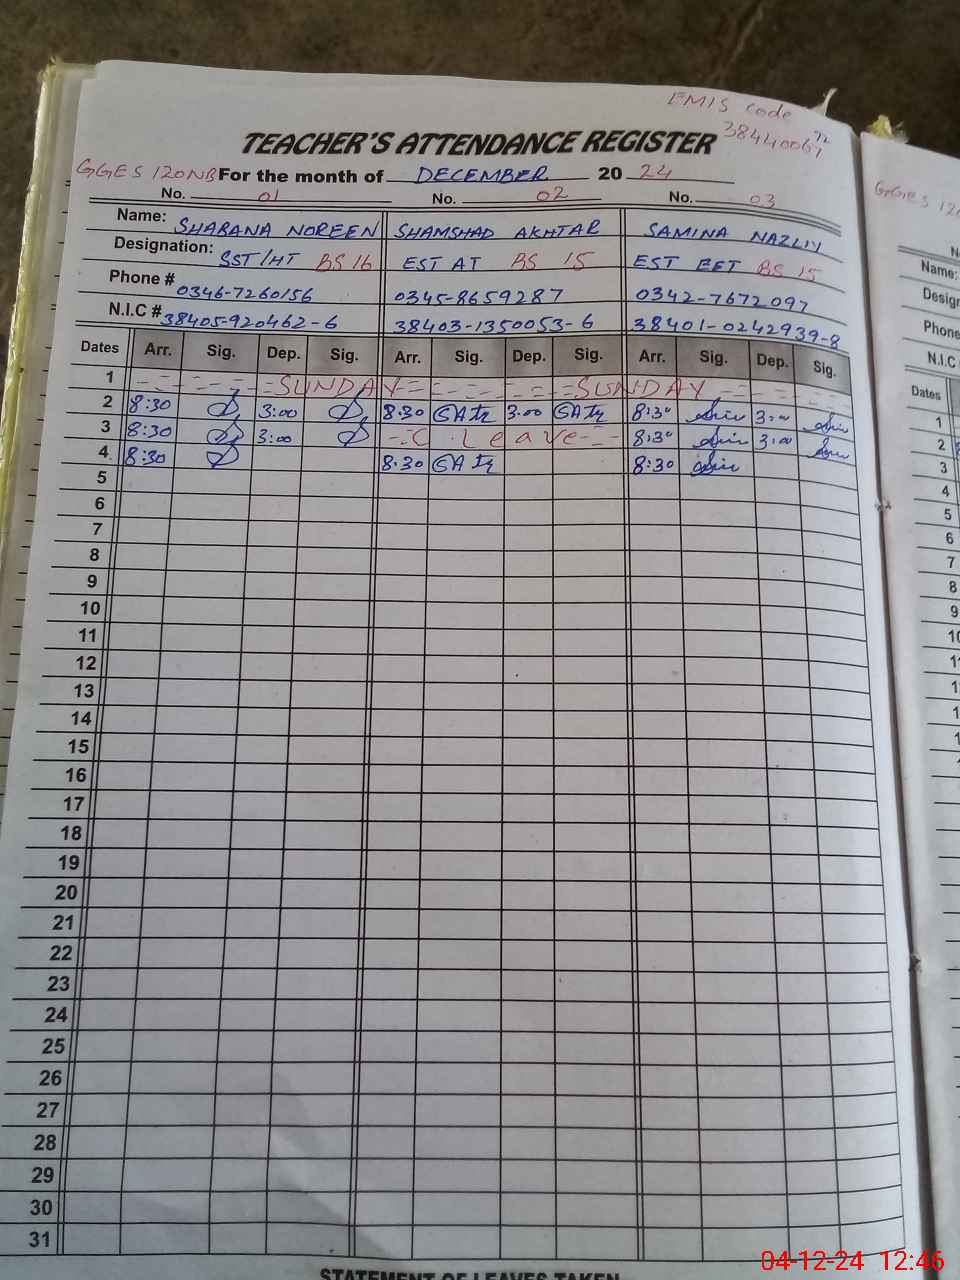 EMIS code
38440067
72
TEACHER'S ATTENDANCE REGISTER
GGES 120NB For the month of DECEMBER 20 24
No. 01 No. 02 No. 03
Name: SHABANA NOREEN SHAMSHAD AKHTAR SAMINA NAZLIN
Designation: SST/HT BS 16 EST AT BS 15 EST EFT BS 15
Phone # 0346-7260156 0345-8659287 0342-7672097
N.I.C # 38405-920462-6 38403-1350053-6 38401-0242939-8
Dates Arr. Sig. Dep. Sig. Arr. Sig. Dep. Sig. Arr. Sig. Dep. Sig.
1 SUNDAY SUNDAY
2 8:30 3:00 8.30 3.00 8:30 3:00
3 8:30 3:00 C. Leave 8:30 3:00
4 8:30 8.30 8:30
5
6
7
8
9
10
11
12
13
14
15
16
17
18
19
20
21
22
23
24
25
26
27
28
29
30
31
STATEMENT OF LEAVES TAKEN
GGES
Name:
Phone
N.I.C
Dates
1
2
3
4
5
6
7
8
9
04-12-24 12:46